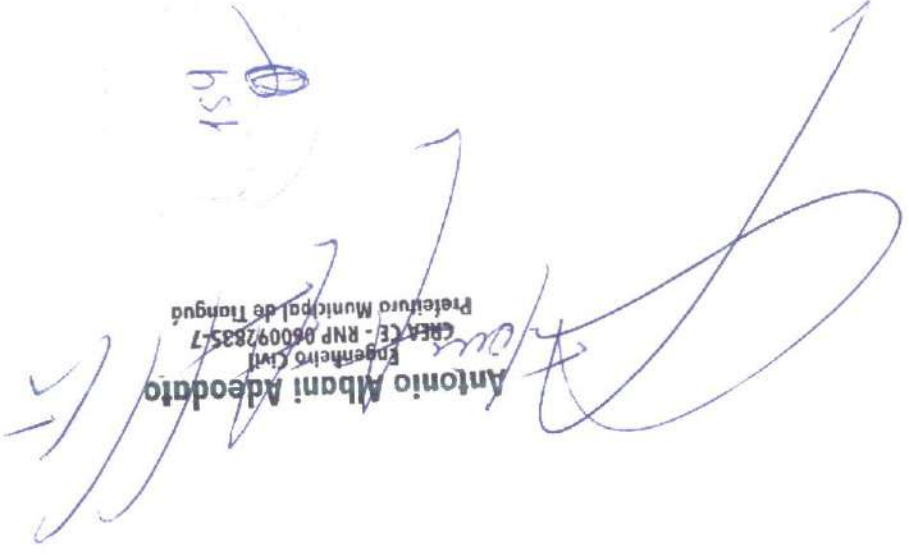 Antonio Albani Adeodato
Engenheiro Civil
CREA/CE - RNP 060092835-7
Prefeitura Municipal de Tianguá